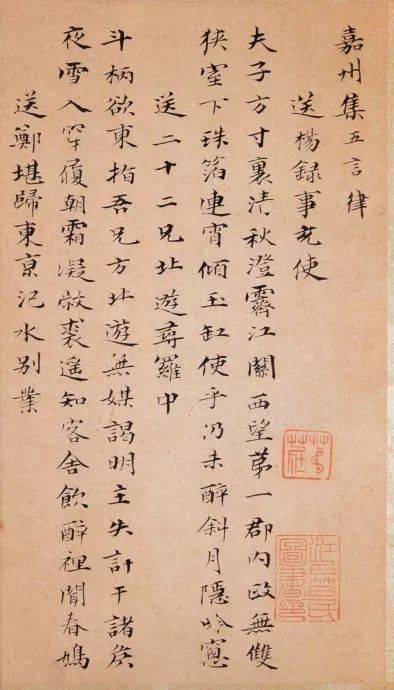 嘉州集五言律
送楊録事充使
夫子方寸裏清秋澄霽江關西望第一郡内政無雙
狹室下珠箔連宵傾玉缸使乎仍未醉斜月隱吟窻
送二十二兄北遊尋羅中
斗柄欲東指吾兄方北遊無媒謁明主失計干諸矦
夜雪入穿履朝霜凝敝裘遥知客舍飲醉裡聞春鳩
送鄭堪歸東京汜水别業